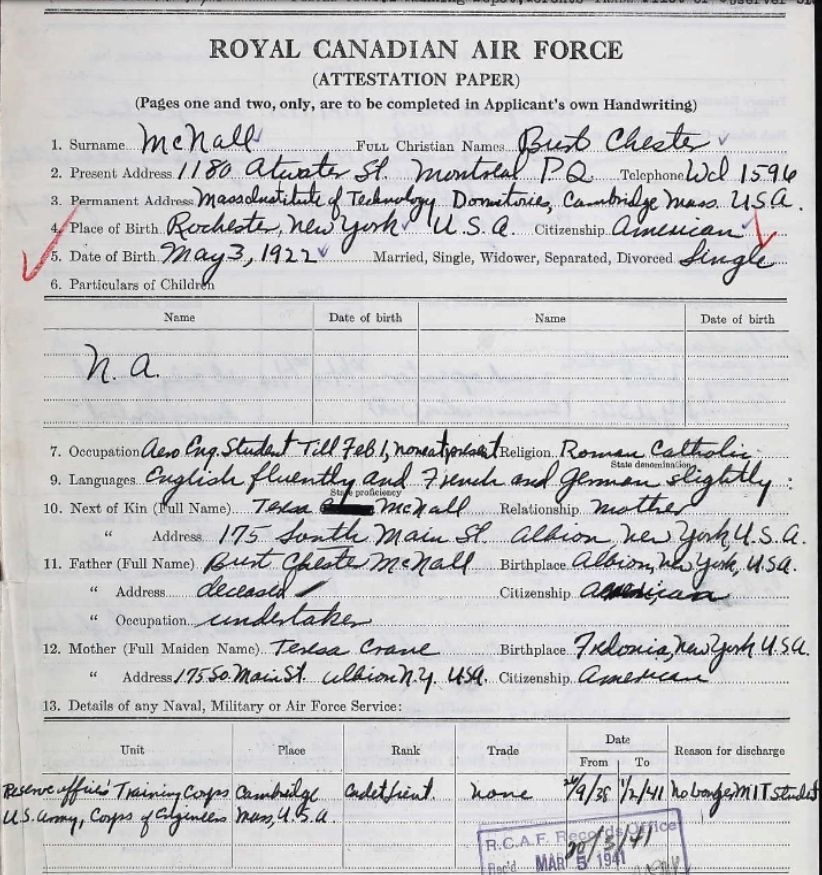 ROYAL CANADIAN AIR FORCE
(ATTESTATION PAPER)
(Pages one and two, only, are to be completed in Applicant's own Handwriting)
1. Surname McNall FULL Christian Names Burt Chester
2. Present Address 1180 Atwater St. Montreal P.Q. Telephone Wel 1596
3. Permanent Address Mass Institute of Technology Dormitories, Cambridge Mass. U.S.A.
4. Place of Birth Rochester, New York U.S.A. Citizenship American
5. Date of Birth May 3, 1922 Married, Single, Widower, Separated, Divorced Single
6. Particulars of Children
Name Date of birth Name Date of birth
N.A.
7. Occupation Aero Eng. Student Till Feb 1, none at present Religion Roman Catholic
State denomination
9. Languages English fluently and French and German slightly
State proficiency
10. Next of Kin (Full Name) Teresa McNall Relationship mother
" Address 175 South Main St. Albion New York, U.S.A.
11. Father (Full Name) Burt Chester McNall Birthplace Albion, New York, U.S.A.
" Address deceased Citizenship American
" Occupation undertaker
12. Mother (Full Maiden Name) Teresa Crane Birthplace Fredonia, New York U.S.A.
" Address 175 So. Main St. Albion N.Y. U.S.A. Citizenship American
13. Details of any Naval, Military or Air Force Service:
Unit Place Rank Trade Date Reason for discharge
From To
Reserve Officers' Training Corps Cambridge Cadet Lieut none 26/9/38 1/2/41 no longer MIT student
U.S. Army, Corps of Engineers Mass, U.S.A.
R.C.A.F. Records Office
20/3/41
Rec'd MAR 5 1941